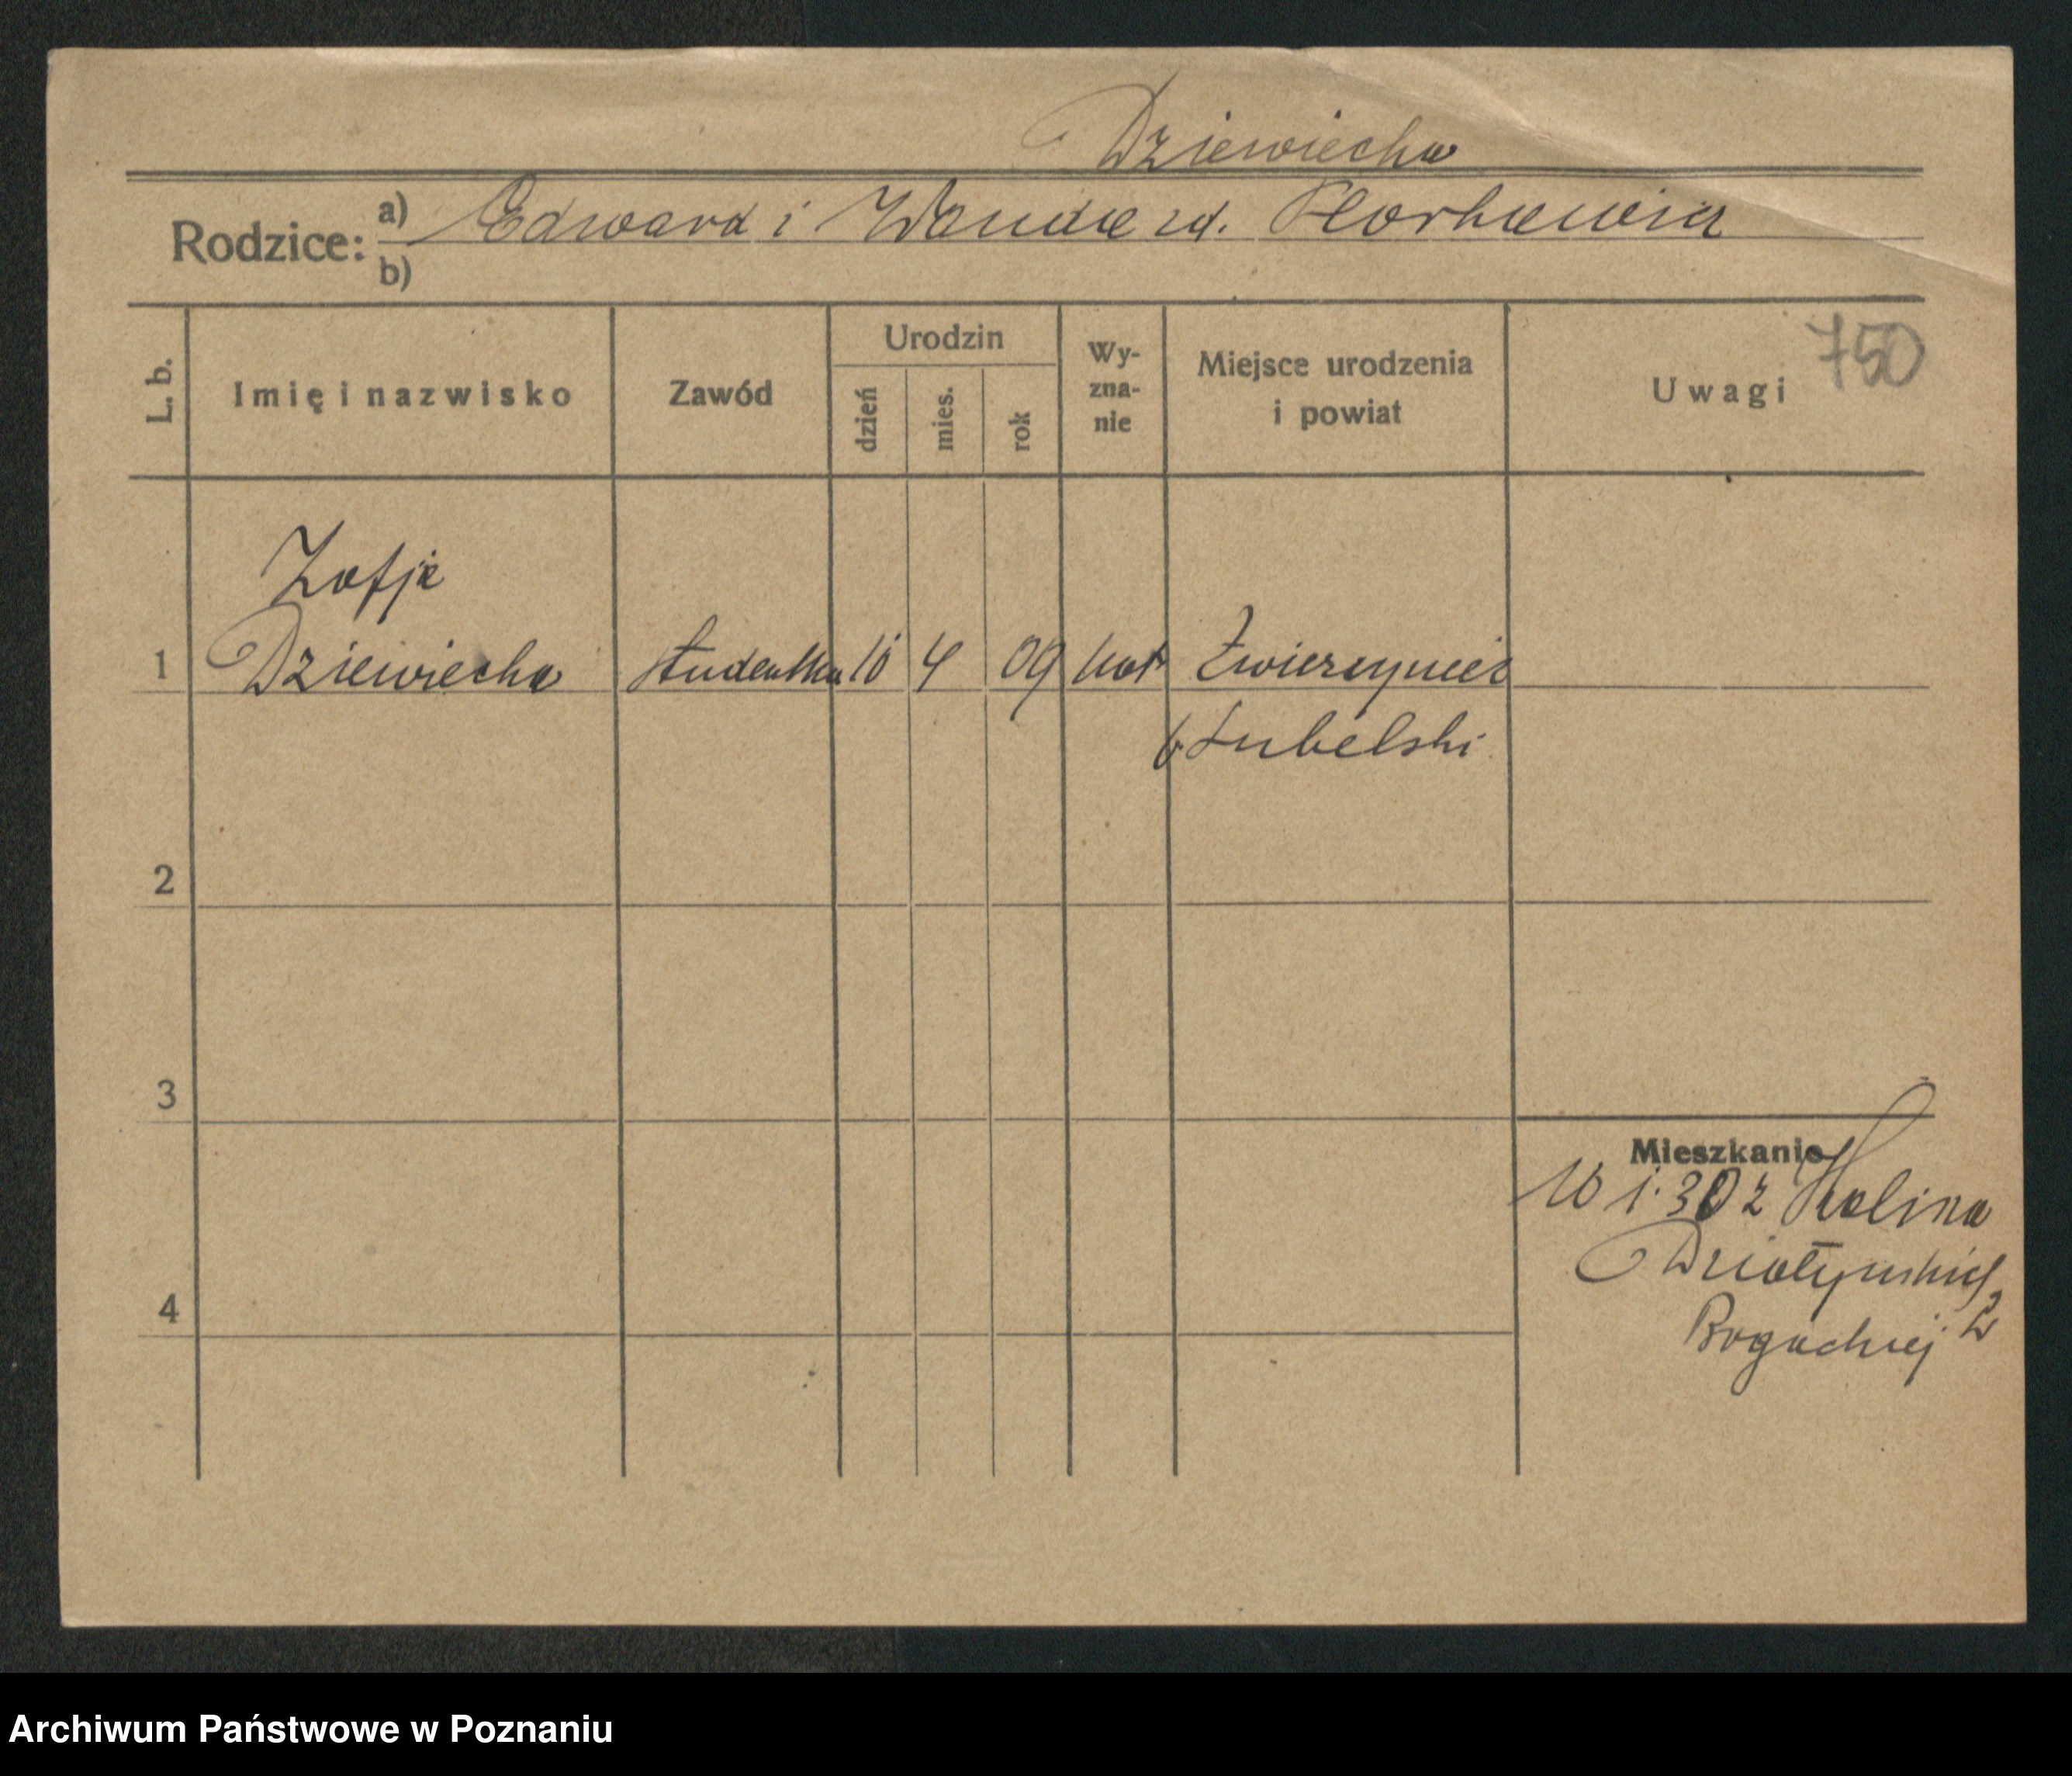 Dziewiecka
Rodzice: a) Edward i Wanda zd.
b)
L. b.
Imię i nazwisko
Zawód
Urodzin
dzień
mies.
rok
Wy-
zna-
nie
Miejsce urodzenia
i powiat
Uwagi
750
Zofja
1 Dziewiecka studentka 10 4 09 kat Zwierzyniec
Lubelski
2
3
4
Mieszkanie
10 1. 30 z Kalina
Działyńskich 2
Archiwum Państwowe w Poznaniu